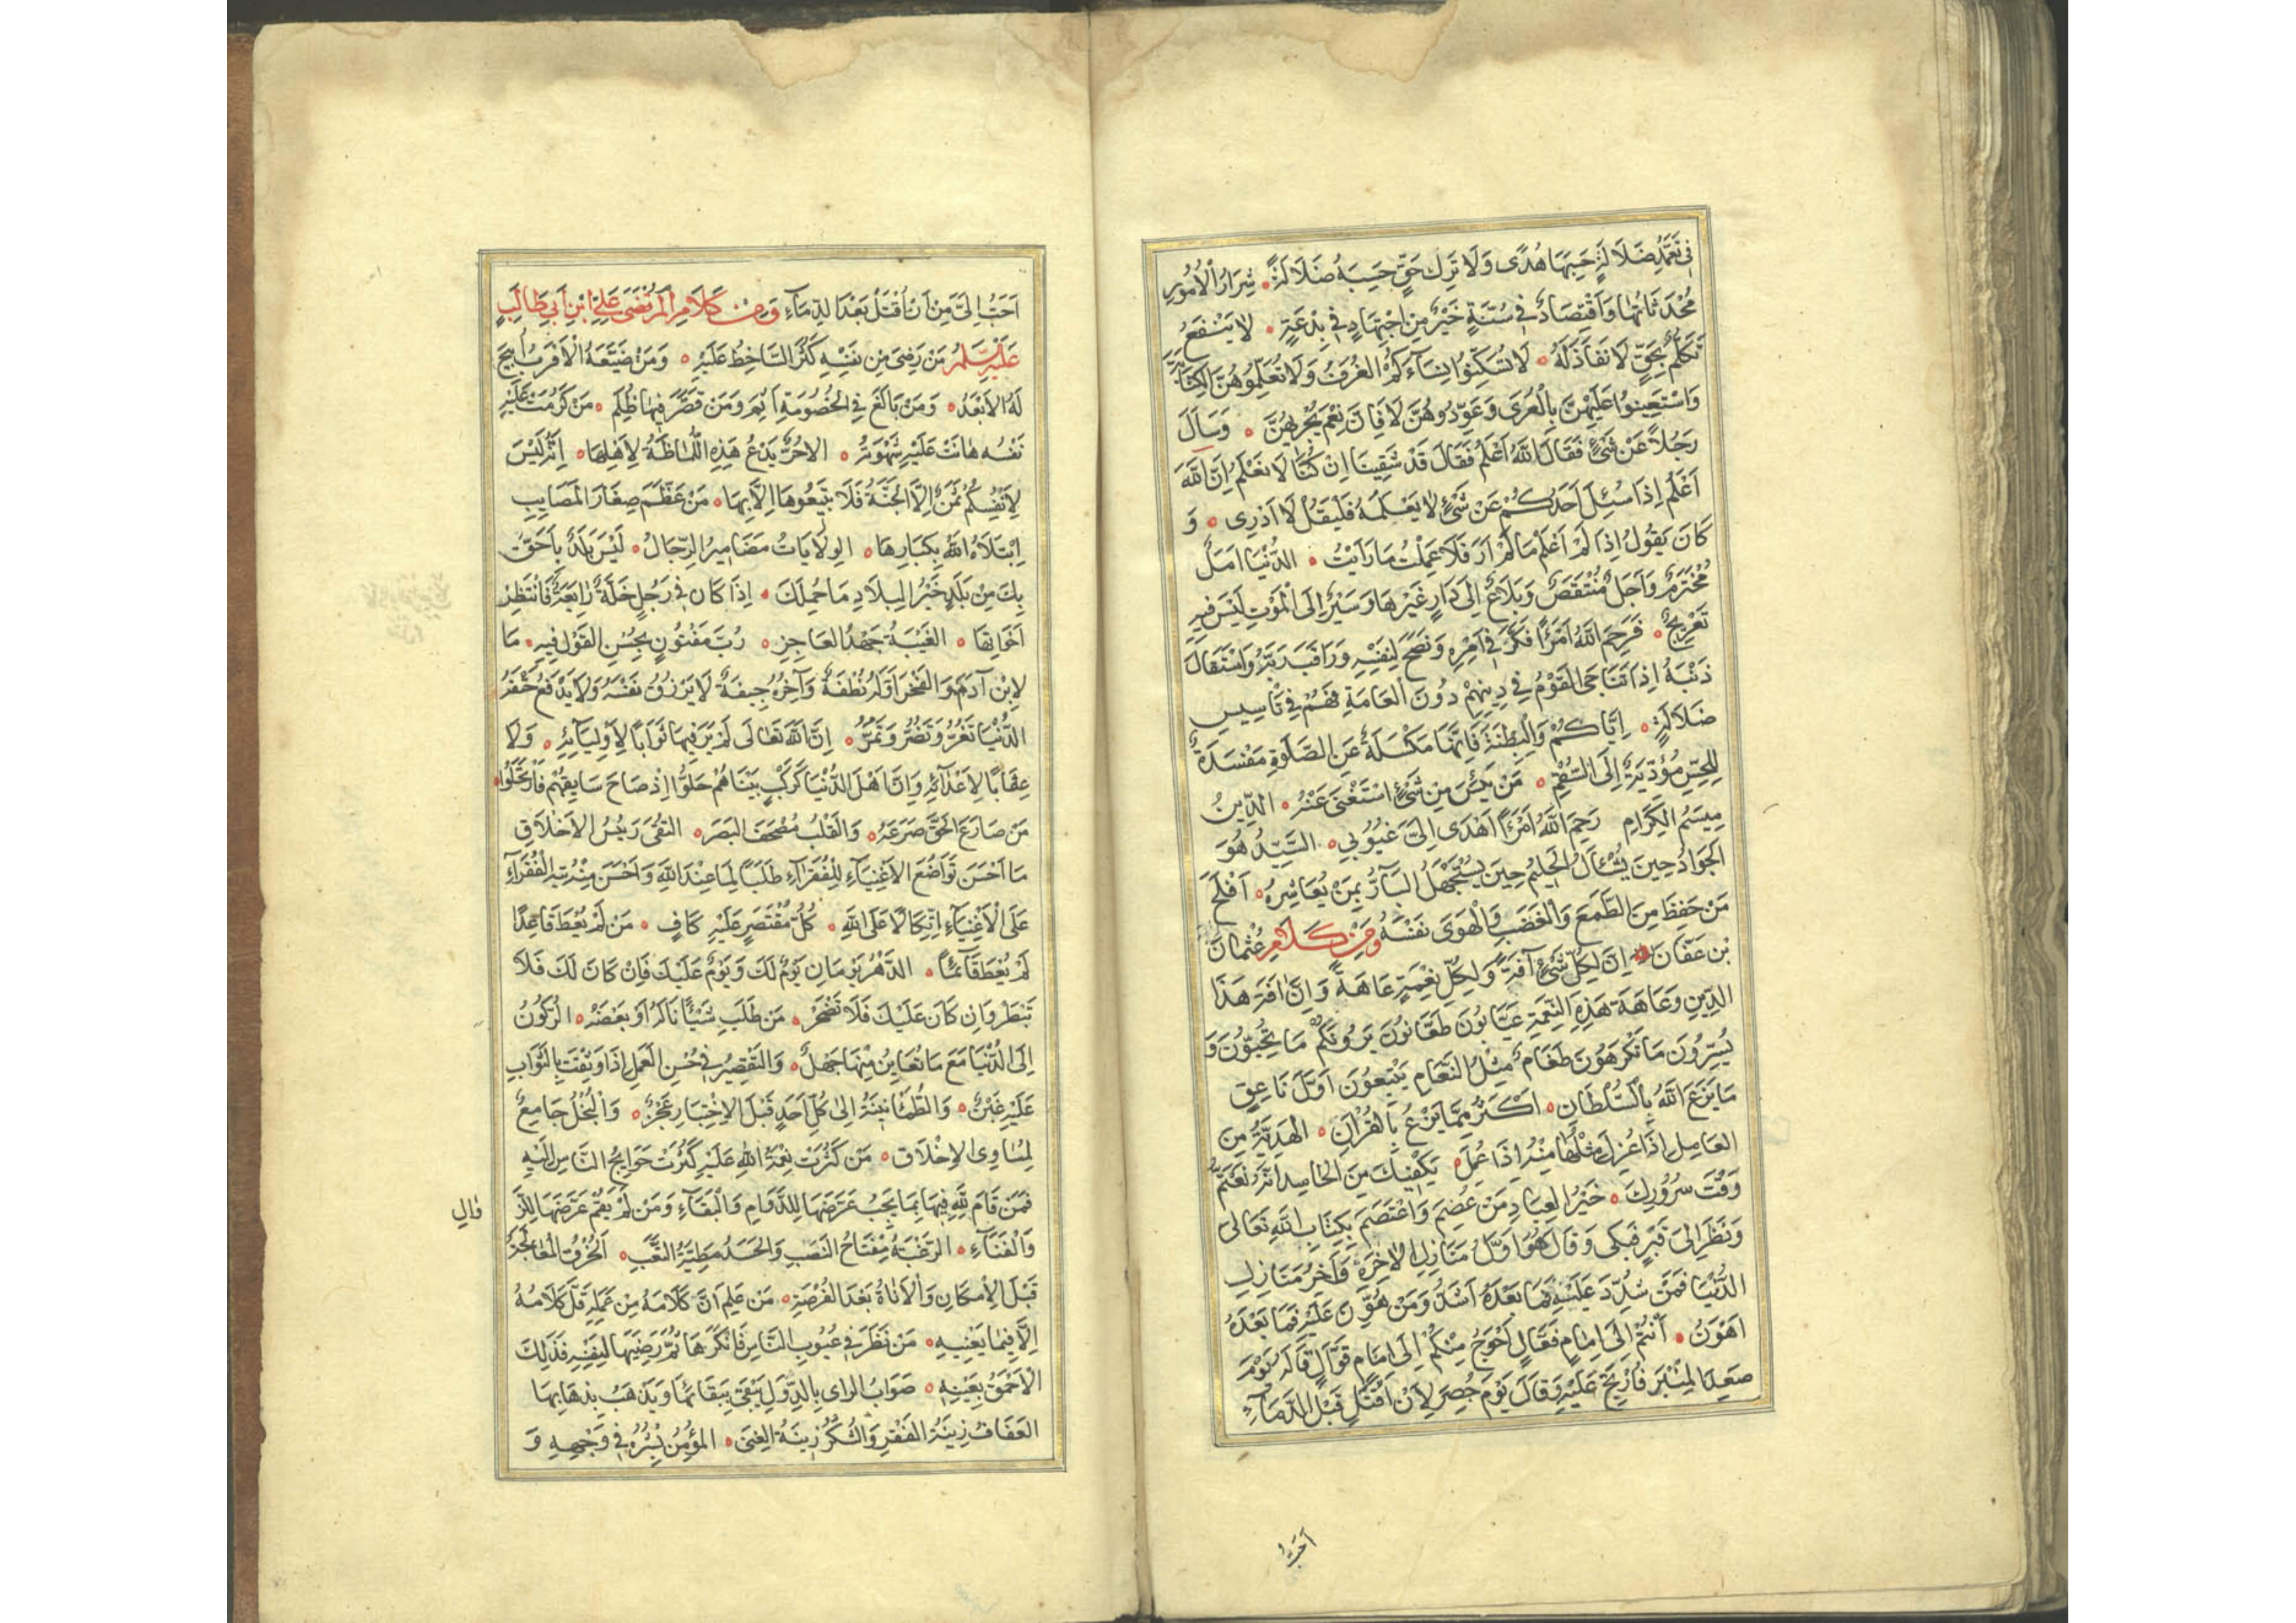 في تعمد ضلالة حسبها هدى ولا ترك حق حسبه ضلالة شرار الأمور
محدثاتها واقتصاد في سنة خير من اجتهاد في بدعة لا ينفع
تكلم بحق لا نفاذ له لا تسكنوا نساءكم الغرف ولا تعلموهن الكتابة
واستعينوا عليهن بالعرى وعودوهن لا فان نعم يجريهن وسأل
رجلا عن شئ فقال الله أعلم فقال قد شقينا ان كنا لا نعلم ان الله
أعلم إذا سئل أحدكم عن شئ لا يعلمه فليقل لا أدري و
كان يقول إذا لم أعلم ما لم أر فلا علمت ما رأيت الدنيا امل
مخترم وأجل منتقص وبلاغ إلى دار غيرها وسير إلى الموت ليس فيه
تعريج فرحم الله امرأ فكر في أمره ونصح لنفسه وراقب ربه واستقال
ذنبه إذا تناجى القوم في دينهم دون العامة فهم في تأسيس
ضلالة إياكم والبطنة فانها مكسلة عن الصلوة مفسدة
للجسم مؤدية إلى السقم من يئس من شئ استغنى عنه الدين
ميسم الكرام رحم الله امرأ أهدى الي عيوبي السيد هو
الجواد حين يسئال الحليم حين يستجهل البار بمن يعاشره أفلح
من حفظ من الطمع والغضب والهوى نفسه ومن كلام عثمان
بن عفان ان لكل شئ آفة ولكل نعمة عاهة وان افة هذا
الدين وعاهة هذه النعمة عيابون طعانون يرونكم ما تحبون و
يسرون ما تكرهون طغام مثل النعام يتبعون أول ناعق
ما يزع الله بالسلطان أكثر مما يزع بالقرآن الهدية من
العامل إذا عزل مثلها منه إذا عمل يكفيك من الحاسد انه يغتم
وقت سرورك خير العباد من عصم واعتصم بكتاب الله تعالى
ونظر إلى قبر فبكى وقال هو أول منازل الآخرة وآخر منازل
الدنيا فمن شدد عليه فما بعده أشد ومن هون عليه فما بعده
اهون أنتم إلى امام فعال أحوج منكم إلى امام قوال قاله يوم
صعد المنبر فارتج عليه وقال يوم حصر لأن أقتل قبل الدماء
أحب
أحب إلي من أن أقتل بعد الدماء ومن كلام المرتضى علي ابن أبي طالب
عليه السلام من رضي من نفسه كثر الساخط عليه ومن ضيعه الأقرب أبيح
له الأبعد ومن بالغ في الخصومة أثم ومن قصر فيها ظلم من كرمت عليه
نفسه هانت عليه شهوته الا حر يدع هذه اللماظة لأهلها انه ليس
لأنفسكم ثمن إلا الجنة فلا تبيعوها إلا بها من عظم صغار المصايب
ابتلاه الله بكبارها الولايات مضامير الرجال ليس بلد بأحق
بك من بلد خير البلاد ما حملك إذا كان في رجل خلة رايعة فانتظر
أخواتها الغيبة جهد العاجز رب مفتون بحسن القول فيه ما
لابن آدم والفخر أوله نطفة وآخره جيفة لا يرزق نفسه ولا يدفع حتفه
الدنيا تغر وتضر وتمر إن الله تعالى لم يرها ثوابا لأوليائه ولا
عقابا لأعدائه وان أهل الدنيا كركب بيناهم حلوا إذ صاح سايقهم فارتحلوا
من صارع الحق صرعه والقلب مصحف البصر التقى رئيس الأخلاق
ما أحسن تواضع الأغنياء للفقراء طلبا لما عند الله وأحسن منه تيه الفقراء
على الأغنياء اتكالا على الله كل مقتصر عليه كاف من لم يعط قاعدا
لم يعط قائما الدهر يومان يوم لك ويوم عليك فإن كان لك فلا
تبطر وان كان عليك فلا تضجر من طلب شيئا ناله أو بعضه الركون
إلى الدنيا مع ما تعاين منها جهل والتقصير في حسن العمل إذا وثقت بالثواب
عليه غبن والطمأنينة إلى كل أحد قبل الاختبار عجز والبخل جامع
لمساوي الاخلاق من كثرت نعمة الله عليه كثرت حوايج الناس إليه
فمن قام لله فيها بما يجب عرضها للدوام والبقاء ومن لم يقم عرضها للزوال
والفناء الرغبة مفتاح النصب والحسد مطية التعب الخرق المعاجلة
قبل الإمكان والأناة بعد الفرصة من علم أن كلامه من عمله قل كلامه
إلا فيما يعنيه من نظر في عيوب الناس فأنكرها ثم رضيها لنفسه فذلك
الأحمق بعينه صواب الراي بالدول يبقى ببقائها ويذهب بذهابها
العفاف زينة الفقر والشكر زينة الغنى المؤمن بشره في وجهه و